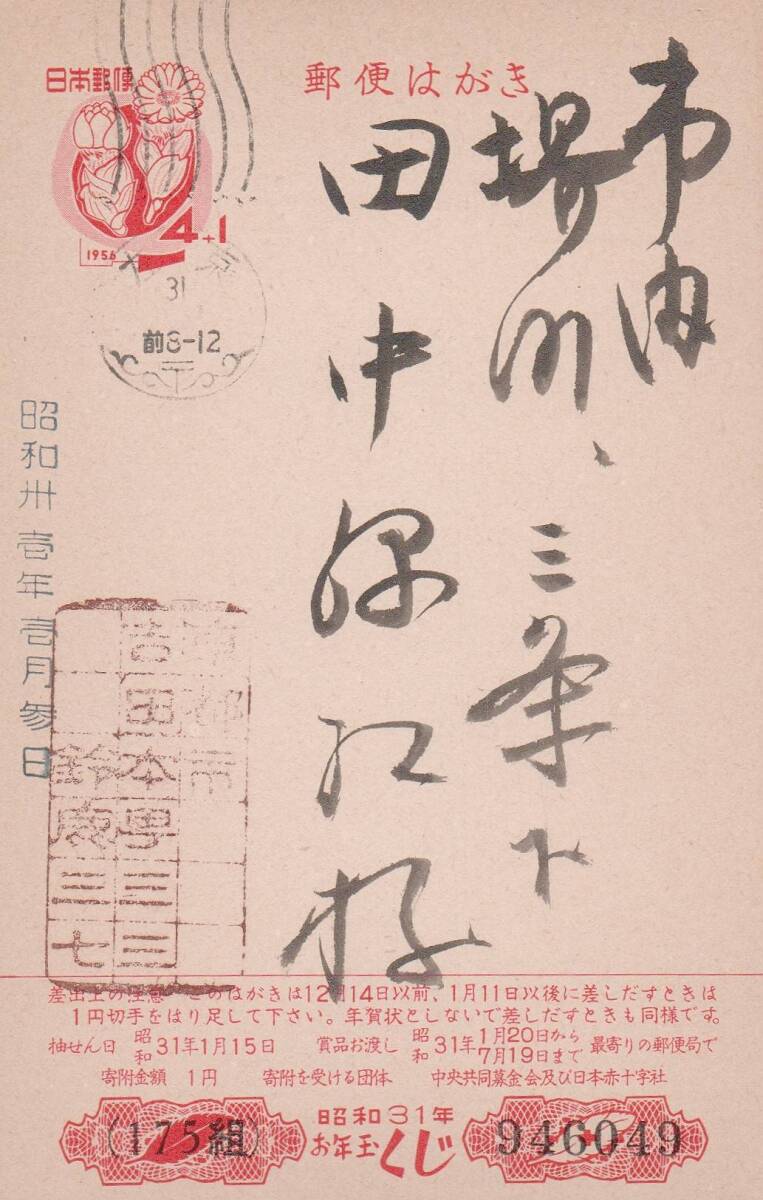 日本郵便
郵便はがき
4+1
1956
31
前8-12
市内
堺町、三条下
田中
江様
昭和卅壱年壱月参日
京都市
吉田本町三三
三七
差出上の注意 このはがきは12月14日以前、1月11日以後に差しだすときは
1円切手をはり足して下さい。年賀状としないで差しだすときも同様です。
抽せん日 昭和31年1月15日 賞品お渡し 昭和31年1月20日から7月19日まで 最寄りの郵便局で
寄附金額 1円 寄附を受ける団体 中央共同募金会及び日本赤十字社
(175組)
昭和31年
お年玉くじ
946049